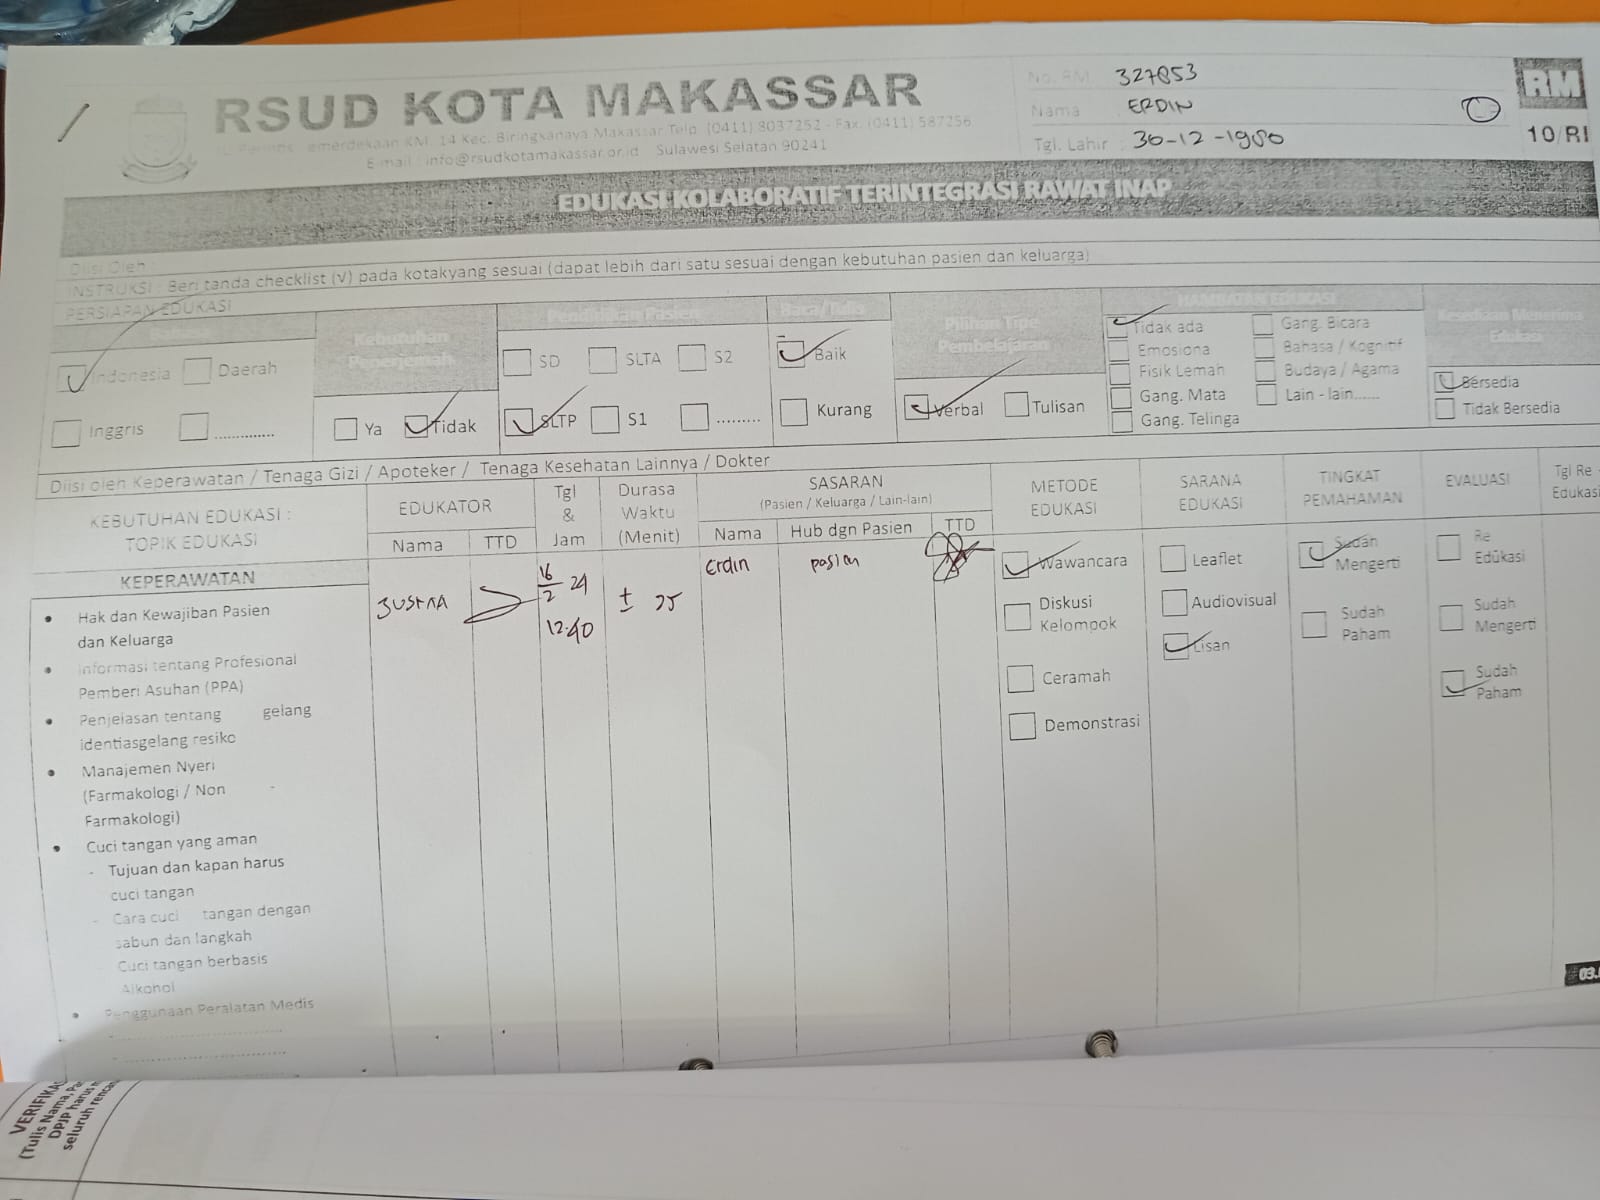 RSUD KOTA MAKASSAR
emerdekaan KM. 14 Kec. Biringkanaya Makassar Telp. (0411) 8037252 - Fax. (0411) 587256
E-mail : info@rsudkotamakassar.or.id Sulawesi Selatan 90241
No. RM 327853
Nama ERDIN
Tgl. Lahir : 30-12-1980
RM
10/RI
EDUKASI KOLABORATIF TERINTEGRASI RAWAT INAP
Diisi Oleh :
INSTRUKSI : Beri tanda checklist (√) pada kotakyang sesuai (dapat lebih dari satu sesuai dengan kebutuhan pasien dan keluarga)
PERSIAPAN EDUKASI
Indonesia Daerah
Inggris .............
Kebutuhan
Penerjemah
Ya Tidak
Pendidikan Pasien
SD SLTA S2
SLTP S1 .........
Baca/Tulis
Baik
Kurang
Pilihan Tipe
Pembelajaran
Verbal Tulisan
HAMBATAN EDUKASI
Tidak ada Gang. Bicara
Emosiona Bahasa / Kognitif
Fisik Lemah Budaya / Agama
Gang. Mata Lain - lain......
Gang. Telinga
Kesediaan Menerima
Edukasi
Bersedia
Tidak Bersedia
Diisi oleh Keperawatan / Tenaga Gizi / Apoteker / Tenaga Kesehatan Lainnya / Dokter
KEBUTUHAN EDUKASI :
TOPIK EDUKASI
EDUKATOR
Nama TTD
Tgl
&
Jam
Durasa
Waktu
(Menit)
SASARAN
(Pasien / Keluarga / Lain-lain)
Nama Hub dgn Pasien TTD
METODE
EDUKASI
SARANA
EDUKASI
TINGKAT
PEMAHAMAN
EVALUASI
Tgl Re
Edukasi
KEPERAWATAN
• Hak dan Kewajiban Pasien
dan Keluarga
• Informasi tentang Profesional
Pemberi Asuhan (PPA)
• Penjelasan tentang gelang
identiasgelang resiko
• Manajemen Nyeri
(Farmakologi / Non -
Farmakologi)
• Cuci tangan yang aman
- Tujuan dan kapan harus
cuci tangan
- Cara cuci tangan dengan
sabun dan langkah
Cuci tangan berbasis
Alkohol
• Penggunaan Peralatan Medis
16/2 24
12.40
± 25
Erdin
pasien
Wawancara
Diskusi
Kelompok
Ceramah
Demonstrasi
Leaflet
Audiovisual
Lisan
Sudah
Mengerti
Sudah
Paham
Re
Edukasi
Sudah
Mengerti
Sudah
Paham
03.
VERIFIKA
(Tulis Nama, Pa
DPJP harus m
seluruh renca